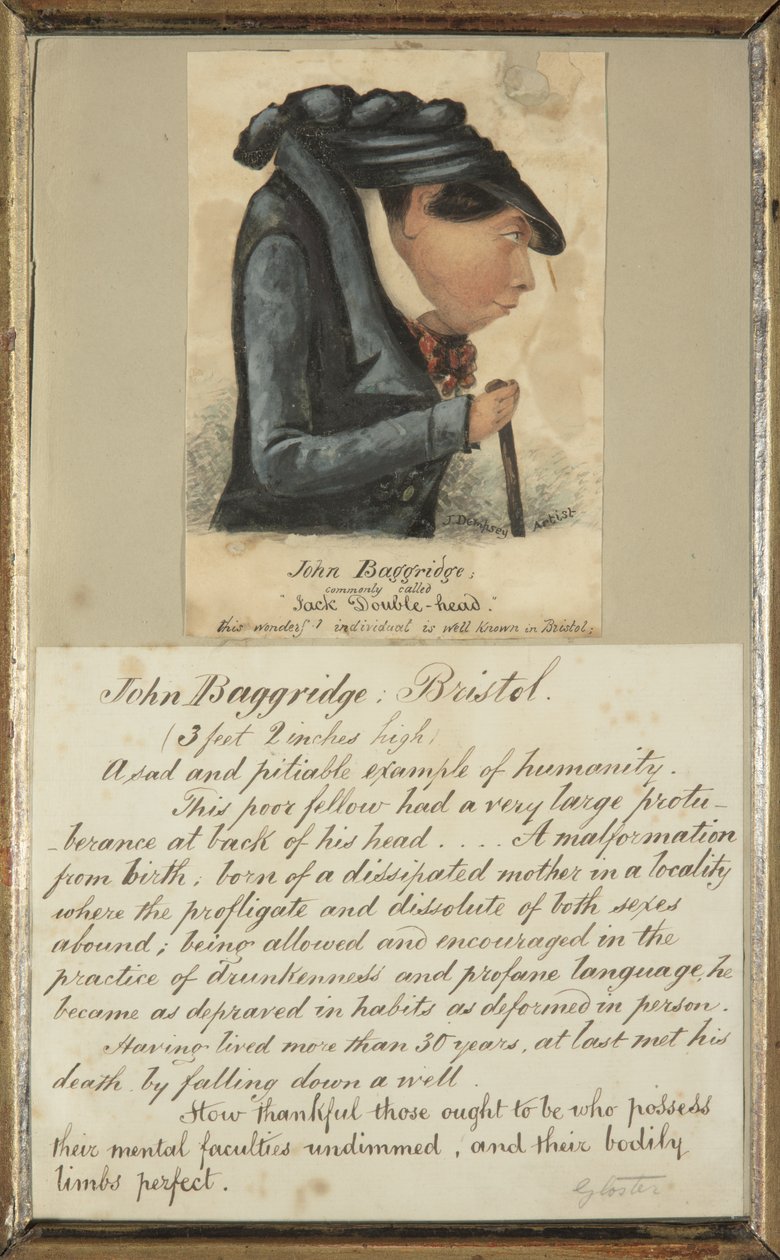 J Dempsey Artist
John Baggridge;
commonly called
"Jack Double-head."
this wonderf l individual is well known in Bristol;
John Baggridge: Bristol.
(3 feet 2 inches high)
A sad and pitiable example of humanity.
This poor fellow had a very large protu-
-berance at back of his head.... A malformation
from birth; born of a dissipated mother in a locality
where the profligate and dissolute of both sexes
abound; being allowed and encouraged in the
practice of drunkenness and profane language, he
became as depraved in habits as deformed in person.
Having lived more than 30 years, at last met his
death by falling down a well.
How thankful those ought to be who possess
their mental faculties undimmed, and their bodily
limbs perfect.
Gloster